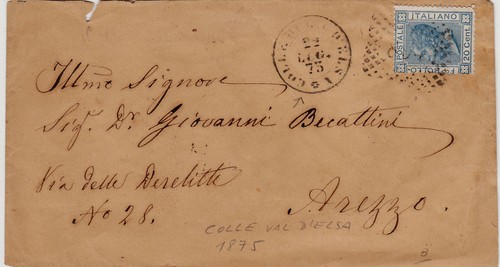 COLLE DI VAL D'ELSA
22
LUG.
75
POSTALE ITALIANO 20 Cent.
FR.BOLLO
Illmo Signore
Sig. Dr. Giovanni Becattini
Via delle Derelitte
No 28.
Arezzo.
COLLE VAL D'ELSA
1875